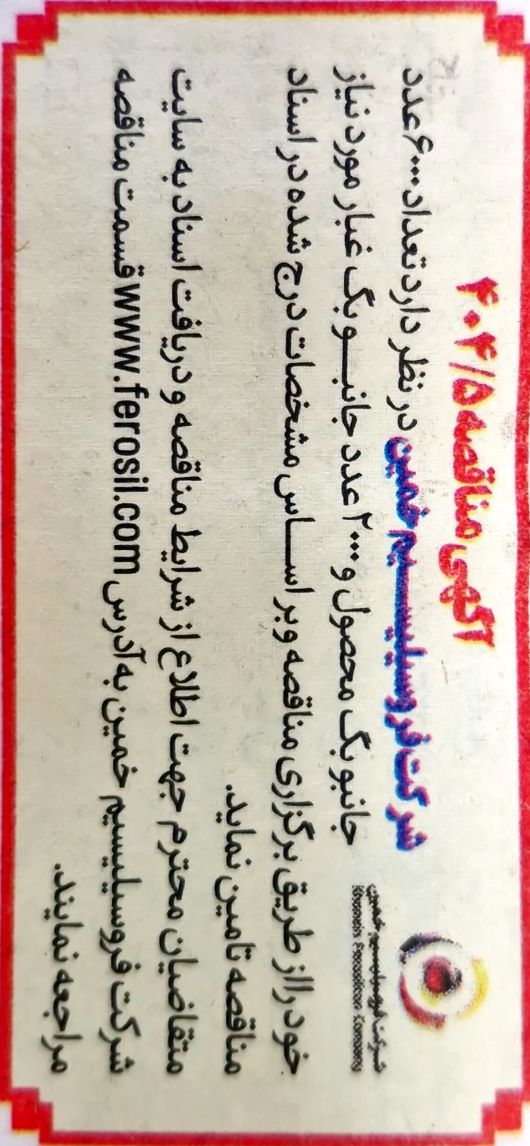 آگهی مناقصه ۴۰۴/۵
شرکت فروسیلیسیم خمین در نظر دارد تعداد ۶۰۰۰ عدد
جانبو بگ محصول و ۲۰۰۰ عدد جانبو بگ غبار مورد نیاز
خود را از طریق برگزاری مناقصه و بر اساس مشخصات درج شده در اسناد
مناقصه تامین نماید.
متقاضیان محترم جهت اطلاع از شرایط مناقصه و دریافت اسناد به سایت
شرکت فروسیلیسیم خمین به آدرس www.ferosil.com قسمت مناقصه
مراجعه نمایند.
شرکت فروسیلیسیم خمین
Khomein Ferrosilicon Company